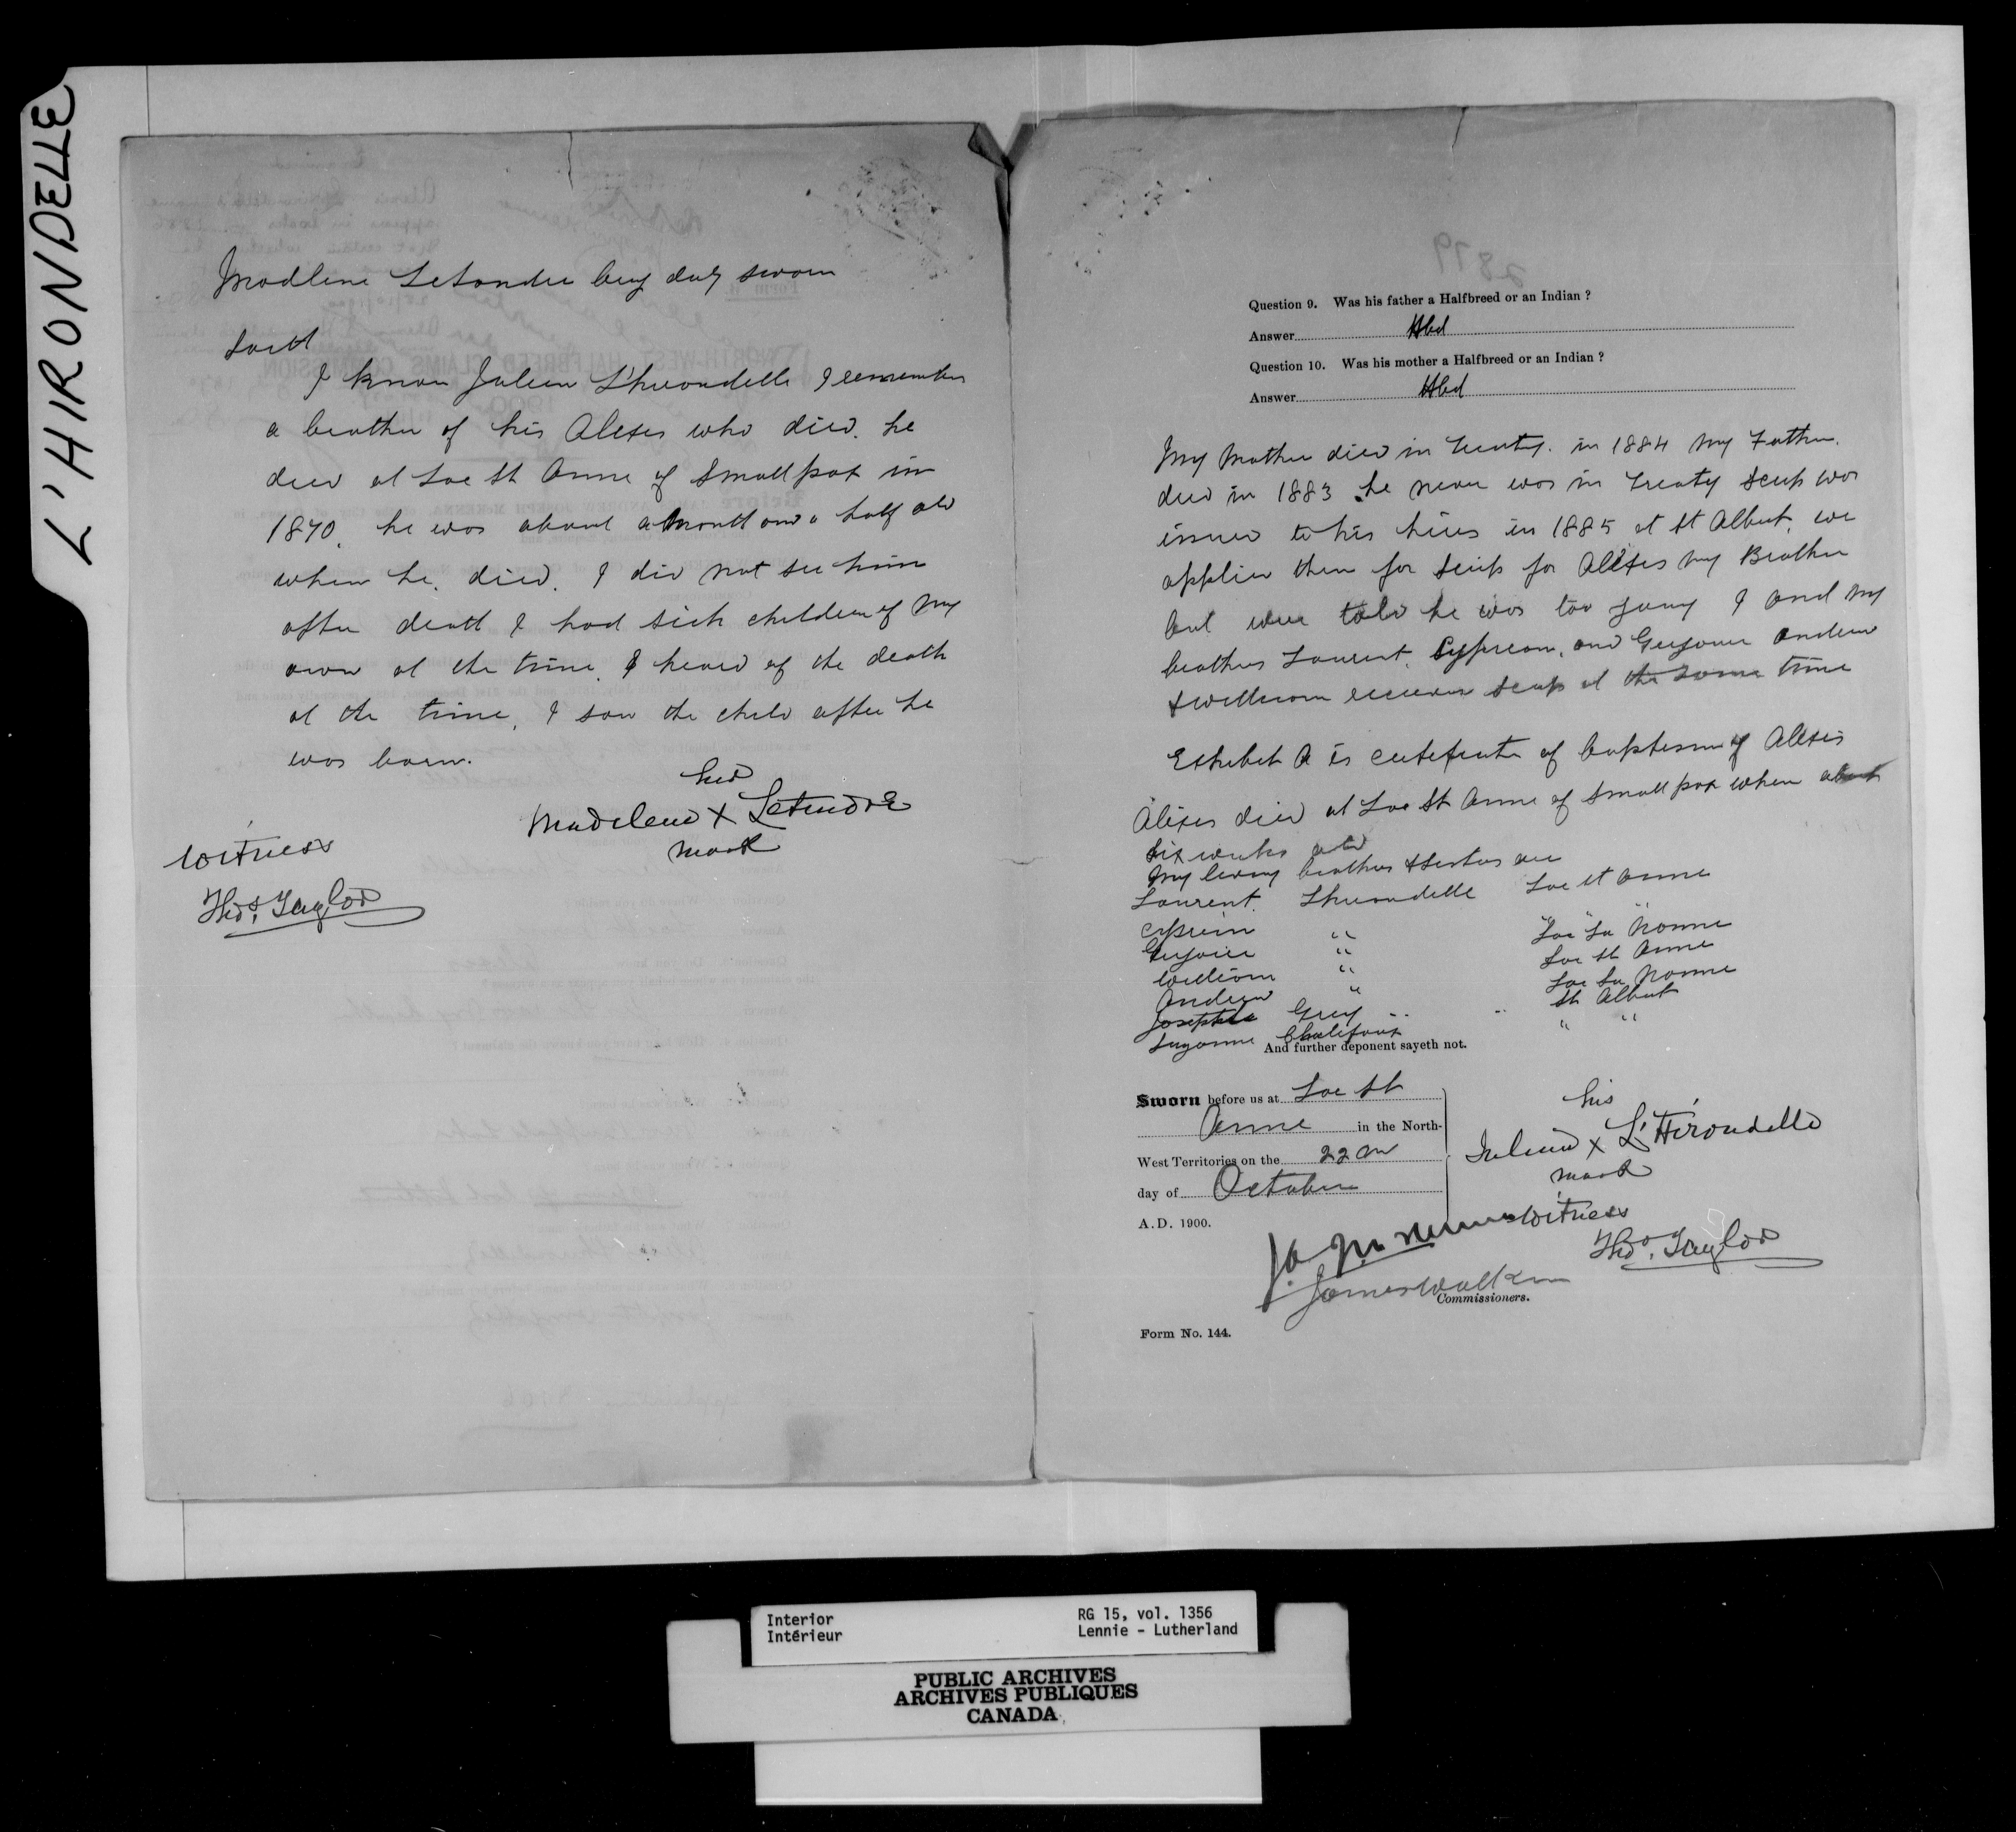 L'HIRONDELLE
Madlene Letendre being duly sworn
saith
I know Julien L'hirondelle I remember
a brother of his Alexes who died. he
died at Lac St Anne of Smallpox in
1870. he was about a month and a half old
when he died. I did not see him
after death I had sick children of my
own at the time. I heard of the death
at the time, I saw the child after he
was born.
her
Madelene X Letendre
mark
Witness
Thos. Taylor
Question 9. Was his father a Halfbreed or an Indian ?
Answer Hbd
Question 10. Was his mother a Halfbreed or an Indian ?
Answer Hbd
My Mother died in Treaty. in 1884 My Father
died in 1883 he never was in Treaty scrip was
issued to his heirs in 1885 at St Albert. we
applied then for scrip for Alexes my Brother
but were told he was too young I and my
brothers Laurent, Cypream, and Andrew
& William received scrip at the same time
Exhibit A is certificate of baptism of Alexis
Alexis died at Lac St Anne of Small pox when about
six weeks old
My living brothers & sisters are
Laurent Lhirondelle Lac St Anne
Cyprien " " Lac La Nonne
" Lac St Anne
William " Lac La Nonne
Andrew " St Albert
Josephte Grey " " "
Suzanne Chalifoux " "
And further deponent sayeth not.
Sworn before us at Lac St
Anne in the North-
West Territories on the 22nd
day of October
A.D. 1900.
his
Julien X L'Hirondelle
mark
Witness
Thos. Taylor
James Walker
Commissioners.
Form No. 144.
Interior
Intérieur
RG 15, vol. 1356
Lennie - Lutherland
PUBLIC ARCHIVES
ARCHIVES PUBLIQUES
CANADA